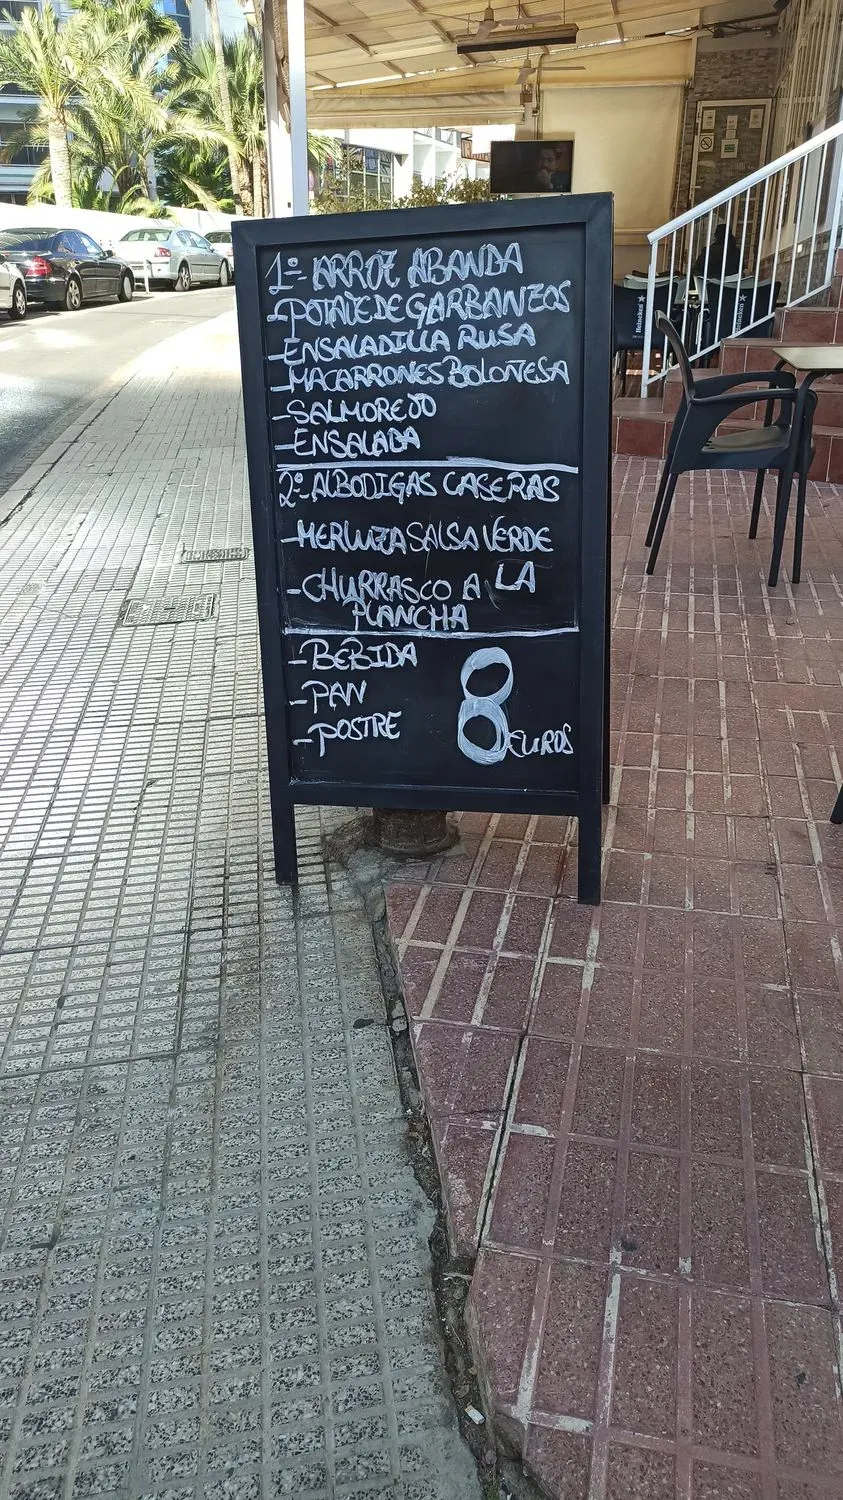 1º- ARROZ ABANDA
-POTAJE DE GARBANZOS
-ENSALADILLA RUSA
-MACARRONES BOLOÑESA
-SALMOREJO
-ENSALADA
2º- ALBODIGAS CASERAS
-MERLUZA SALSA VERDE
-CHURRASCO A LA
PLANCHA
-BEBIDA
-PAN
-POSTRE
8 EUROS
Heineken
Heineken